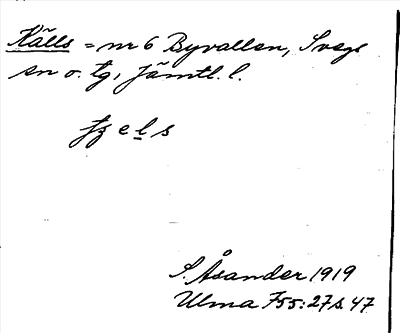 Källs = nr 6 Byvallen, Svegs
sn o. tg, Jämtl. l.
S. Åsander 1919
Ulma 755:27 s. 47